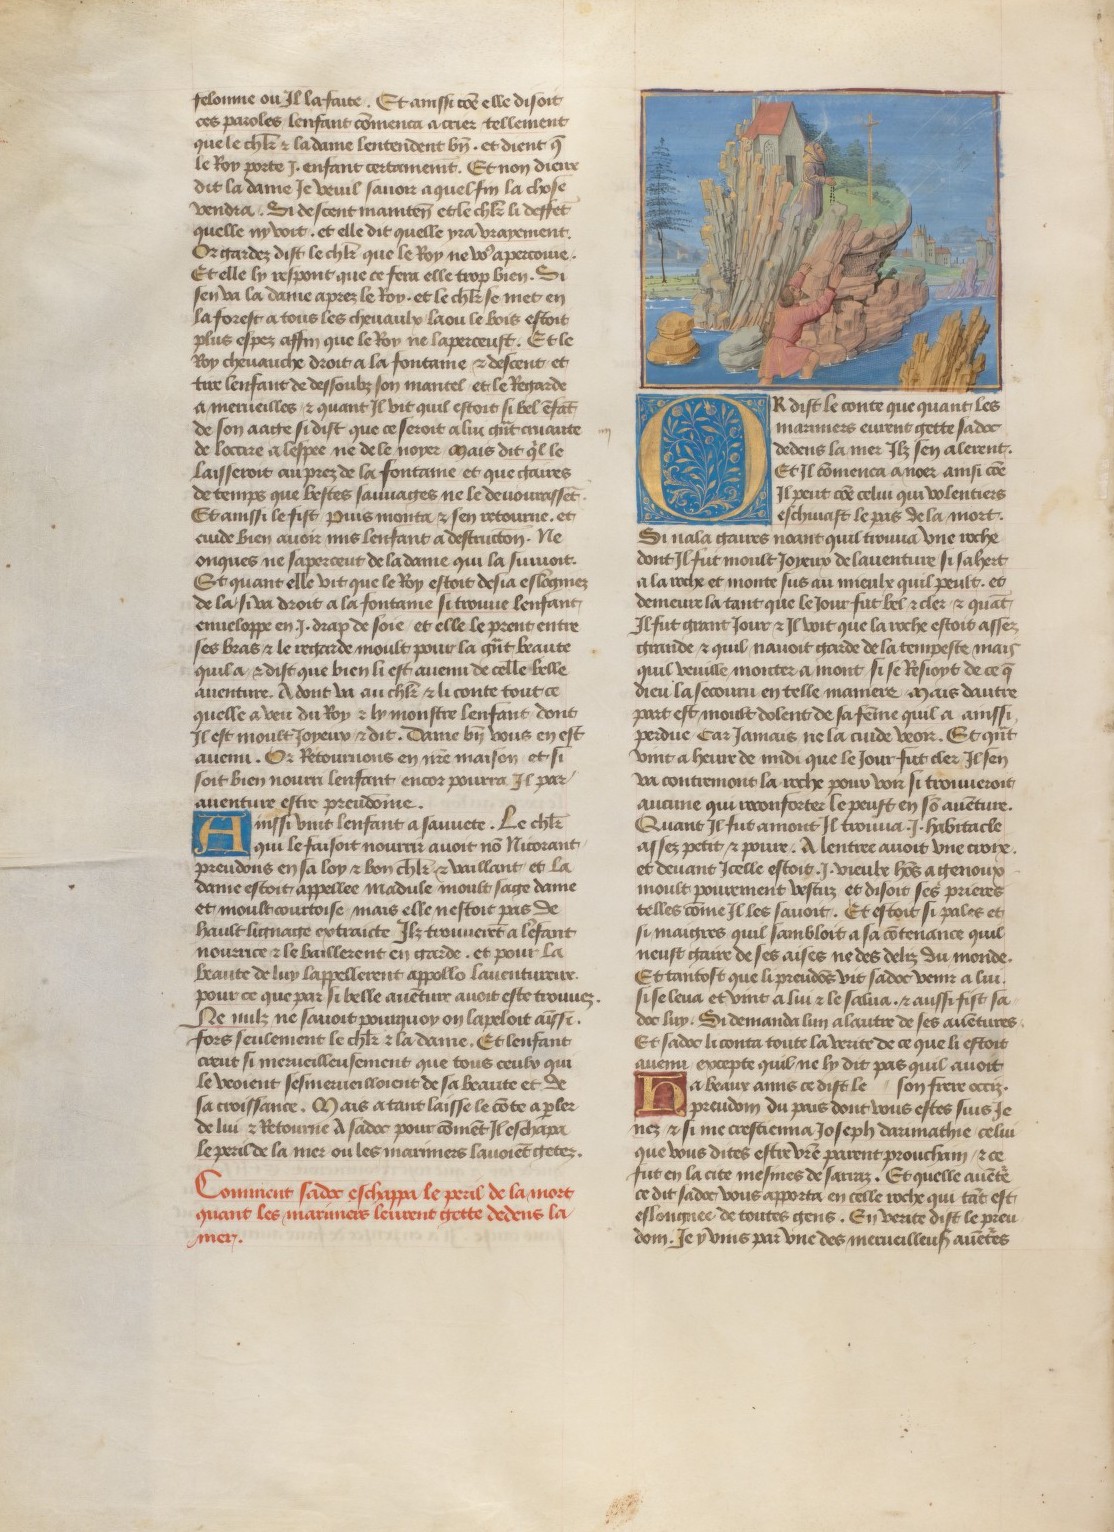 felonnie ou Il la faite . Et ainssi cōe elle disoit
ces paroles lenfant cōmenca a crier tellement
que le chlr̄ ⁊ la dame lentendent bn̄ . et dient q̄
le Roy porte .j. enfant certainemēt. Et non dieue
dit la dame Je veuil sauoir a quel fin la chose
vendra . Si descent mainten̄ et le chlr̄ li deffēt
quelle ny voit . et elle dit quelle yra vrayement.
Or gardez dist le chlr̄ que le Roy ne voꝰ apercoiue .
Et elle ly respont que ce fera elle trop bien . Si
sen va la dame aprez le Roy . et le chlr̄ se met en
la forest a tous les cheuaulx la ou le bois estoit
plus espez affin que le Roy ne laperceust . Et le
Roy cheuauche droit a la fontaine ⁊ descent et
tire lenfant de dessoubz son mantel et le Regarde
a merueilles ⁊ quant Il vit quil estoit si bel ēfāt
de son aage si dist que ce seroit a lui grāt cruaute
de loccire a lespee ne de le noyer Mais dit ql̄ le
laisseroit au prez de la fontaine et que gaires
de temps que bestes sauuages ne le deuourassēt .
Et ainssi le fist Puis monta ⁊ sen retourne . et
cuide bien auoir mis lenfant a destruction . Ne
onques ne saperceut de la dame qui la suiuoit.
Et quant elle vit que le Roy estoit desia eslōgniez
de la / si va droit a la fontaine si trouue lenfant
enueloppe en .j. drap de soie et elle le prent entre
ses bras ⁊ le regarde moult pour la grāt beaute
quil a ⁊ dist que bien li est auenu de celle belle
auenture . A dont va au chlr̄ ⁊ li conte tout ce
quelle a veu du Roy ⁊ ly monstre lenfant dont
Il est moult Joyeux ⁊ dit . Dame bn̄ vous en est
auenu . Or Retournons en nr̄e maison et si
soit bien nourri lenfant encor pourra Il par
auenture estre preudome .
Ainssi vint lenfant a sauuete . Le chlr̄
qui le faisoit nourrir auoit nō Nicorant
preudons en sa loy ⁊ bon chlr̄ ⁊ vaillant et la
dame estoit appellee Madule moult sage dame
et moult courtoise mais elle nestoit pas de
hault lignage extraicte Ilz trouuerēt a lēfant
nourrice ⁊ le baillerent en garde . et pour la
beaute de luy lappellerent appollo lauentureux .
pour ce que par si belle auēture auoit este trouuez .
Ne nulz ne sauoit pourquoy on lapeloit aīssi .
fors seulement le chlr̄ ⁊ la dame . Et lenfant
creut si merueilleusement que tous ceulx qui
le veoient sesmerueilloient de sa beaute et de
sa croissance . Mais atant laisse le cōte a pler
de lui ⁊ Retourne A sadoc pour cōment Il eschapa
le peril de la mer ou les mariniers lauoiēt getez .
Comment sadoc eschappa le peril de la mort
quant les mariniers leurent gette dedens la
mer.
OR dist le conte que quant les
mariniers eurent gette sadoc
dedens la mer Ilz sen alerent .
Et Il cōmenca a noer ainsi cōe
Il peut cōe celui qui volentiers
eschiuast le pas de la mort .
Si nala gaires noant quil trouua vne roche
dont Il fut moult Joyeux de lauenture si sahert
a la roche et monte sus au mieulx quil peult . et
demeure la tant que le Jour fut bel ⁊ cler ⁊ quāt
Il fut grant Jour ⁊ Il voit que la roche estoit assez
grande ⁊ quil nauoit garde de la tempeste mais
quil veuille monter a mont si se Resioyt de ce q̄
dieu la secouru en telle maniere Mais dautre
part est moult dolent de sa fēme quil a ainssi
perdue Car Jamais ne la cuide veoir . Et qn̄t
vint a heure de midi que le Jour fut cler Il sen
va contremont la roche pour voir si trouueroit
aucune qui reconforter le peust en sō auēture .
Quant Il fut amont Il trouua .j. habitacle
assez petit ⁊ poure . A lentree auoit vne croix .
et deuant Icelle estoit .j. vieulx hōs a genoux
moult pourement vestuz et disoit ses prieres
telles cōme Il les sauoit . Et estoit si pales et
si maigres quil sambloit a sa cōtenance quil
neust gaire de ses aises ne des deliz du monde .
Et tantost que li preudōs vit sadoc venir a lui .
si se leua et vint a lui ⁊ le salua . ⁊ aussi fist sa
doc luy . Si demanda lun a lautre de ses auētures .
Et sadoc li conta toute la verite de ce que li estoit
auenu excepte quil ne ly dit pas quil auoit
Ha beaux amis ce dist le son frere occiz .
preudom du pais dont vous estes suis Je
nez ⁊ si me crestienna Joseph darimathie celui
que vous dites estre vr̄e parent prouchain ⁊ ce
fut en la cite mesmes de sarraz . Et quelle auētr̄e
ce dit sadoc vous apporta en celle roche qui tāt est
eslongnee de toutes gens . En verite dist le preu
dom . Je y vins par vne des merueilleus̄ auētr̄es